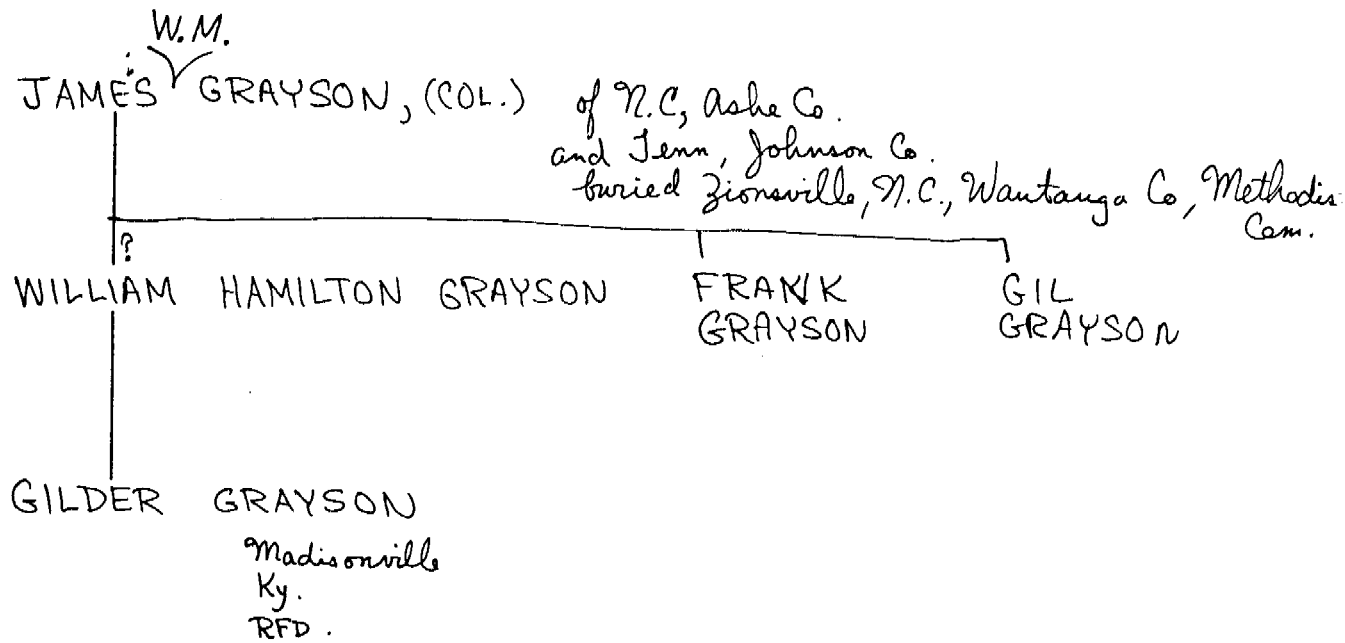 W.M.
JAMES GRAYSON, (COL.) of N.C, Ashe Co.
and Tenn, Johnson Co.
buried Zionsville, N.C., Wautauga Co, Methodis
Cem.
?
WILLIAM HAMILTON GRAYSON
FRANK
GRAYSON
GIL
GRAYSON
GILDER GRAYSON
Madisonville
Ky.
RFD.